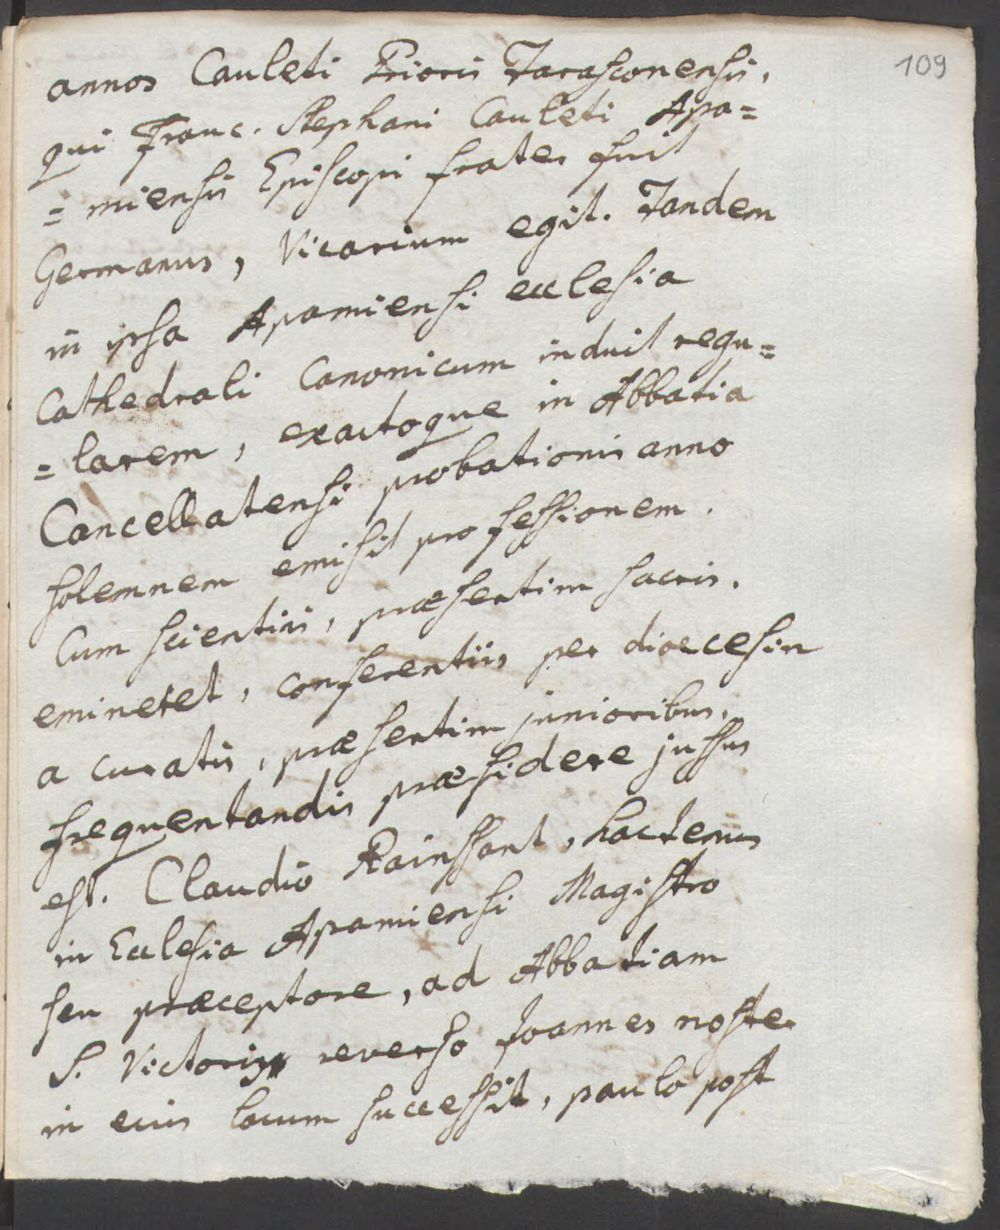 109
annos Cauleti Prioris Tarasconensis,
qui Franc. Stephani Cauleti Apa=
= miensis Episcopi frater fuit
Germanus, Vicarium egit. Tandem
in ipsa Apamiensi ecclesia
Cathedrali Canonicum induit regu=
= larem, exactoque in Abbatia
Cancellatensi probationis anno
solemnem emisit professionem.
Cum scientiis, præsertim sacris,
emineret, conferentiis per diœcesin
a curatis, præsertim junioribus,
frequentandis præsidere jussus
est. Claudio Rainssant, hactenus
in Ecclesia Apamiensi Magistro
seu præceptore, ad Abbatiam
S. Victoris reverso Joannes noster
in eius locum successit, paulo post